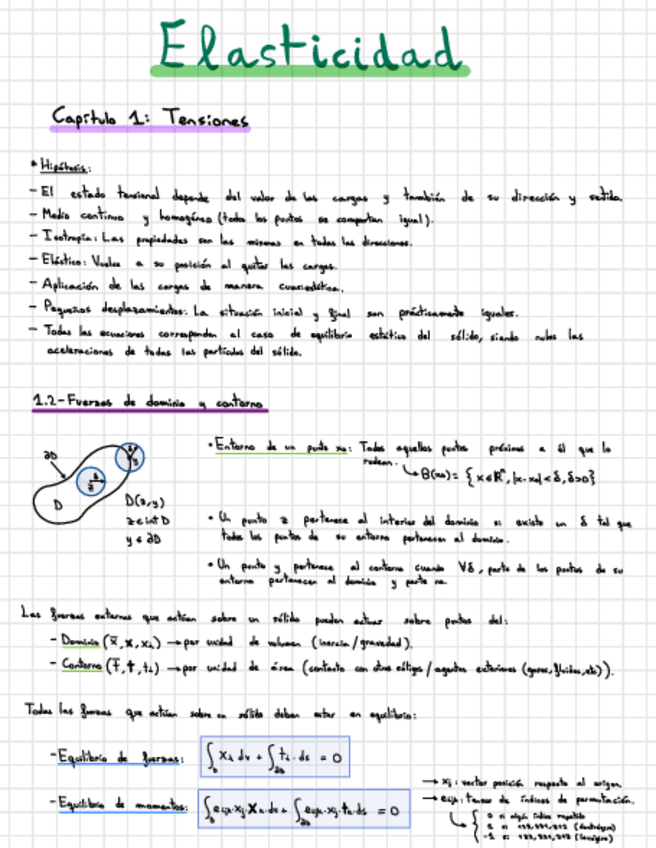 Elasticidad
Capítulo 1: Tensiones
* Hipótesis:
- El estado tensional depende del valor de las cargas y también de su dirección y
- Medio continuo y homogéneo (todos los puntos se comportan igual).
- Isotropía: Las propiedades son las mismas en todas las direcciones.
- Elástico: Vuelve a su posición al quitar las cargas.
- Aplicación de las cargas de manera cuasiestática.
- Pequeños desplazamientos: La situación inicial y final son prácticamente iguales.
- Todas las ecuaciones corresponden al caso de equilibrio estático del sólido, siendo nulas las
aceleraciones de todas las partículas del sólido.
1.2-Fuerzas de dominio y contorno
∂D
D
D(z,y)
z ∈ int D
y ∈ ∂D
• Entorno de un punto x₀: Todos aquellos puntos próximos a él que lo
rodean.
B(x₀) = { x ∈ ℝⁿ, |x-x₀| < δ, δ>0}
• Un punto z pertenece al interior del dominio si existe un δ tal que
todos los puntos de su entorno pertenecen al dominio.
• Un punto y pertenece al contorno cuando ∀δ, parte de los puntos de su
entorno pertenecen al dominio y parte no.
Las fuerzas externas que actúan sobre un sólido pueden actuar sobre puntos del:
- Dominio → por unidad de volumen (inercia/gravedad).
- Contorno → por unidad de área (contacto con otros / agentes exteriores (gases, fluidos, etc)).
Todas las fuerzas que actúan sobre un sólido deben estar en equilibrio:
- Equilibrio de fuerzas: ∫_D Xᵢ dv + ∫_∂D tᵢ · ds = 0
- Equilibrio de momentos: ∫_D eᵢⱼₖ·xⱼ Xₖ dv + ∫_∂D eᵢⱼₖ·xⱼ·tₖ·ds = 0
→ xⱼ: vector posición respecto al origen.
→ eᵢⱼₖ: tensor de índices de permutación.
0 si algún índice repetido